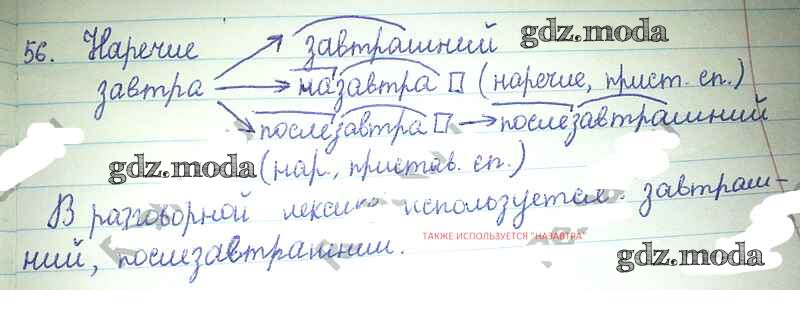 56. Наречие завтрашний gdz.moda
завтра назавтра □ (наречие, прист. сп.)
послезавтра □ → послезавтрашний
gdz.moda (нар., пристав. сп.)
В разговорной лексике используется завтраш-
ТАКЖЕ ИСПОЛЬЗУЕТСЯ "НАЗАВТРА"
ний, послезавтрашний. gdz.moda